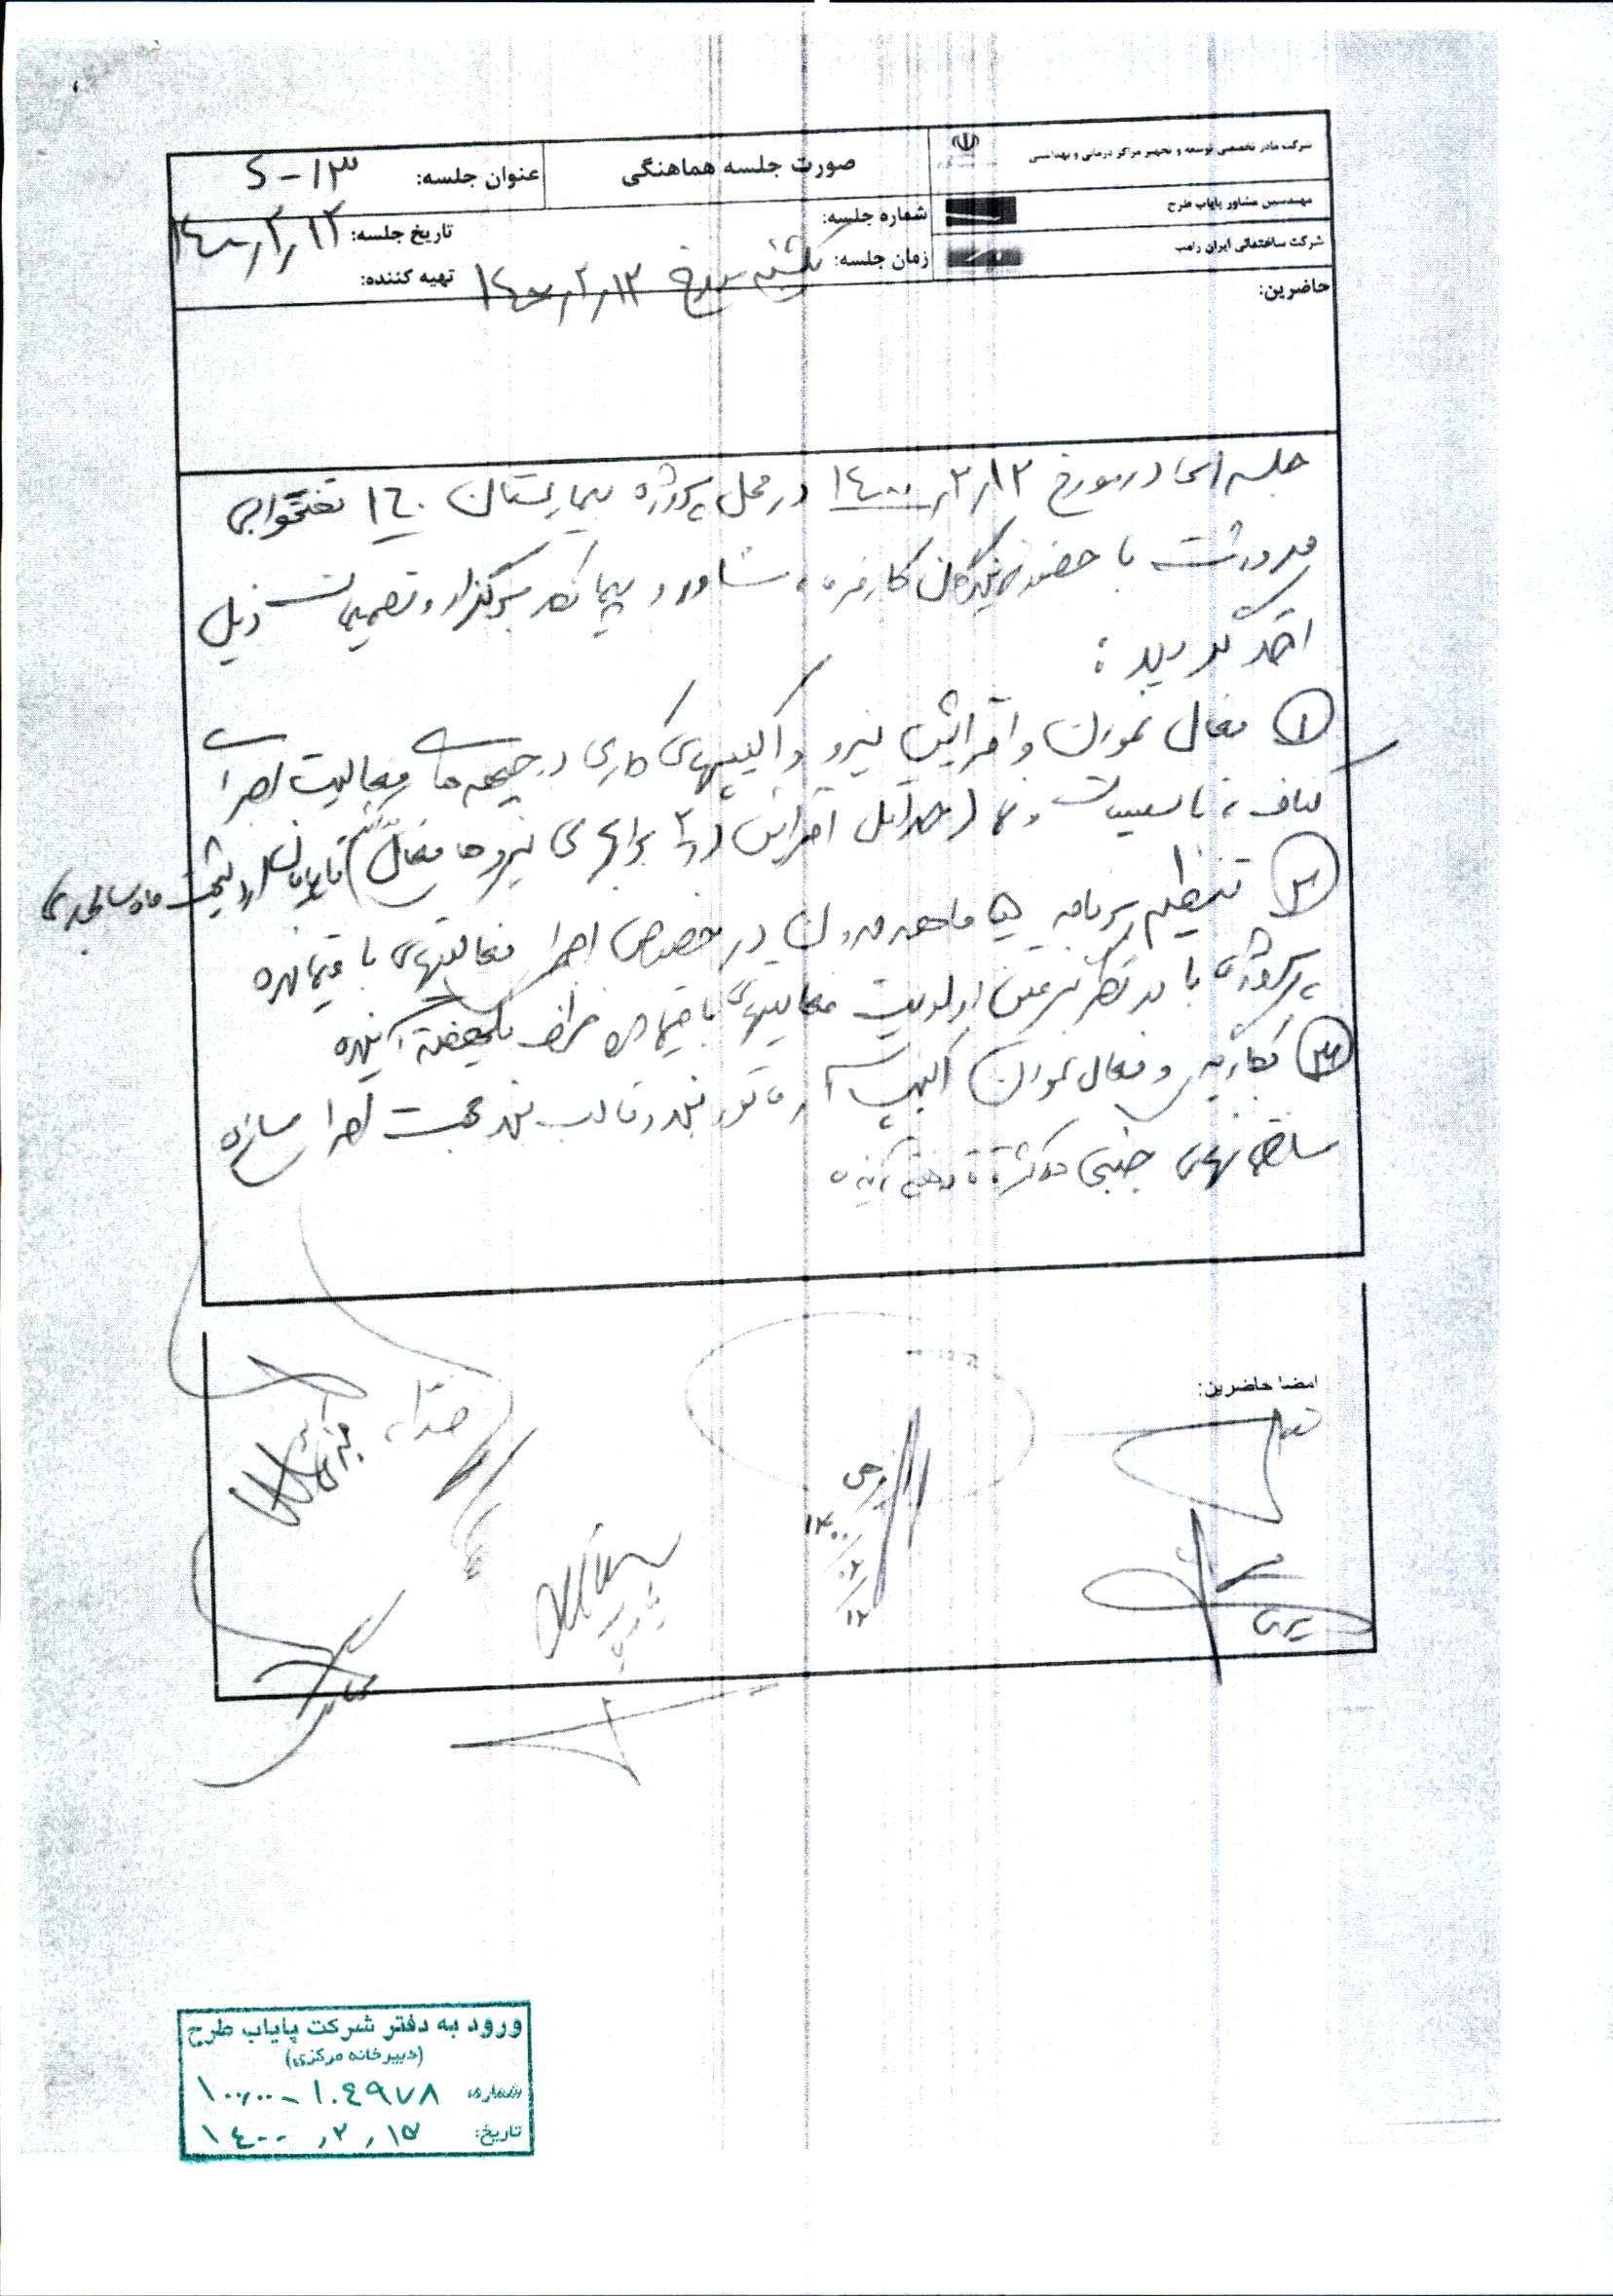 شرکت مادر تخصصی توسعه و تجهیز مراکز درمانی و بهداشتی
مهندسین مشاور پایاب طرح
شرکت ساختمانی ایران رامپ
صورت جلسه هماهنگی
عنوان جلسه: S-13
شماره جلسه:
تاریخ جلسه: ۱۴۰۰٫۲٫۱۲
زمان جلسه: یکشنبه مورخ ۱۴۰۰٫۲٫۱۲
تهیه کننده:
حاضرین:
جلسه ای در مورخ ۱۴۰۰٫۲٫۱۲ در محل پروژه بیمارستان ۱۶۰ تختخوابی
مرودشت با حضور نمایندگان کارفرما، مشاور و پیمانکار برگزار و تصمیمات ذیل
اتخاذ گردید:
۱ فعال نمودن و افزایش نیرو و اکیپهای کاری در جبهه های فعالیت اجرای
کناف، تاسیسات و نما (حداقل افزایش ۲ برابری نیروها فعال)
۲ تنظیم برنامه ماهه مدون در خصوص اجرا فعالیتهای باقیمانده
پروژه با در نظر گرفتن اولویت فعالیتهای باقیمانده ظرف یکهفته آینده
۳ بکارگیری و فعال نمودن اکیپ آرماتوربند و قالب بند جهت اجرا سازه
ساختمانهای جنبی حداکثر تا هفته آینده
امضا حاضرین:
۱۴۰۰
۰۲
۱۲
ورود به دفتر شرکت پایاب طرح
(دبیرخانه مرکزی)
شماره: ۱۰۰٫۰۰ - ۱۰۴۹۷۸
تاریخ: ۱۴۰۰٫۲٫۱۵